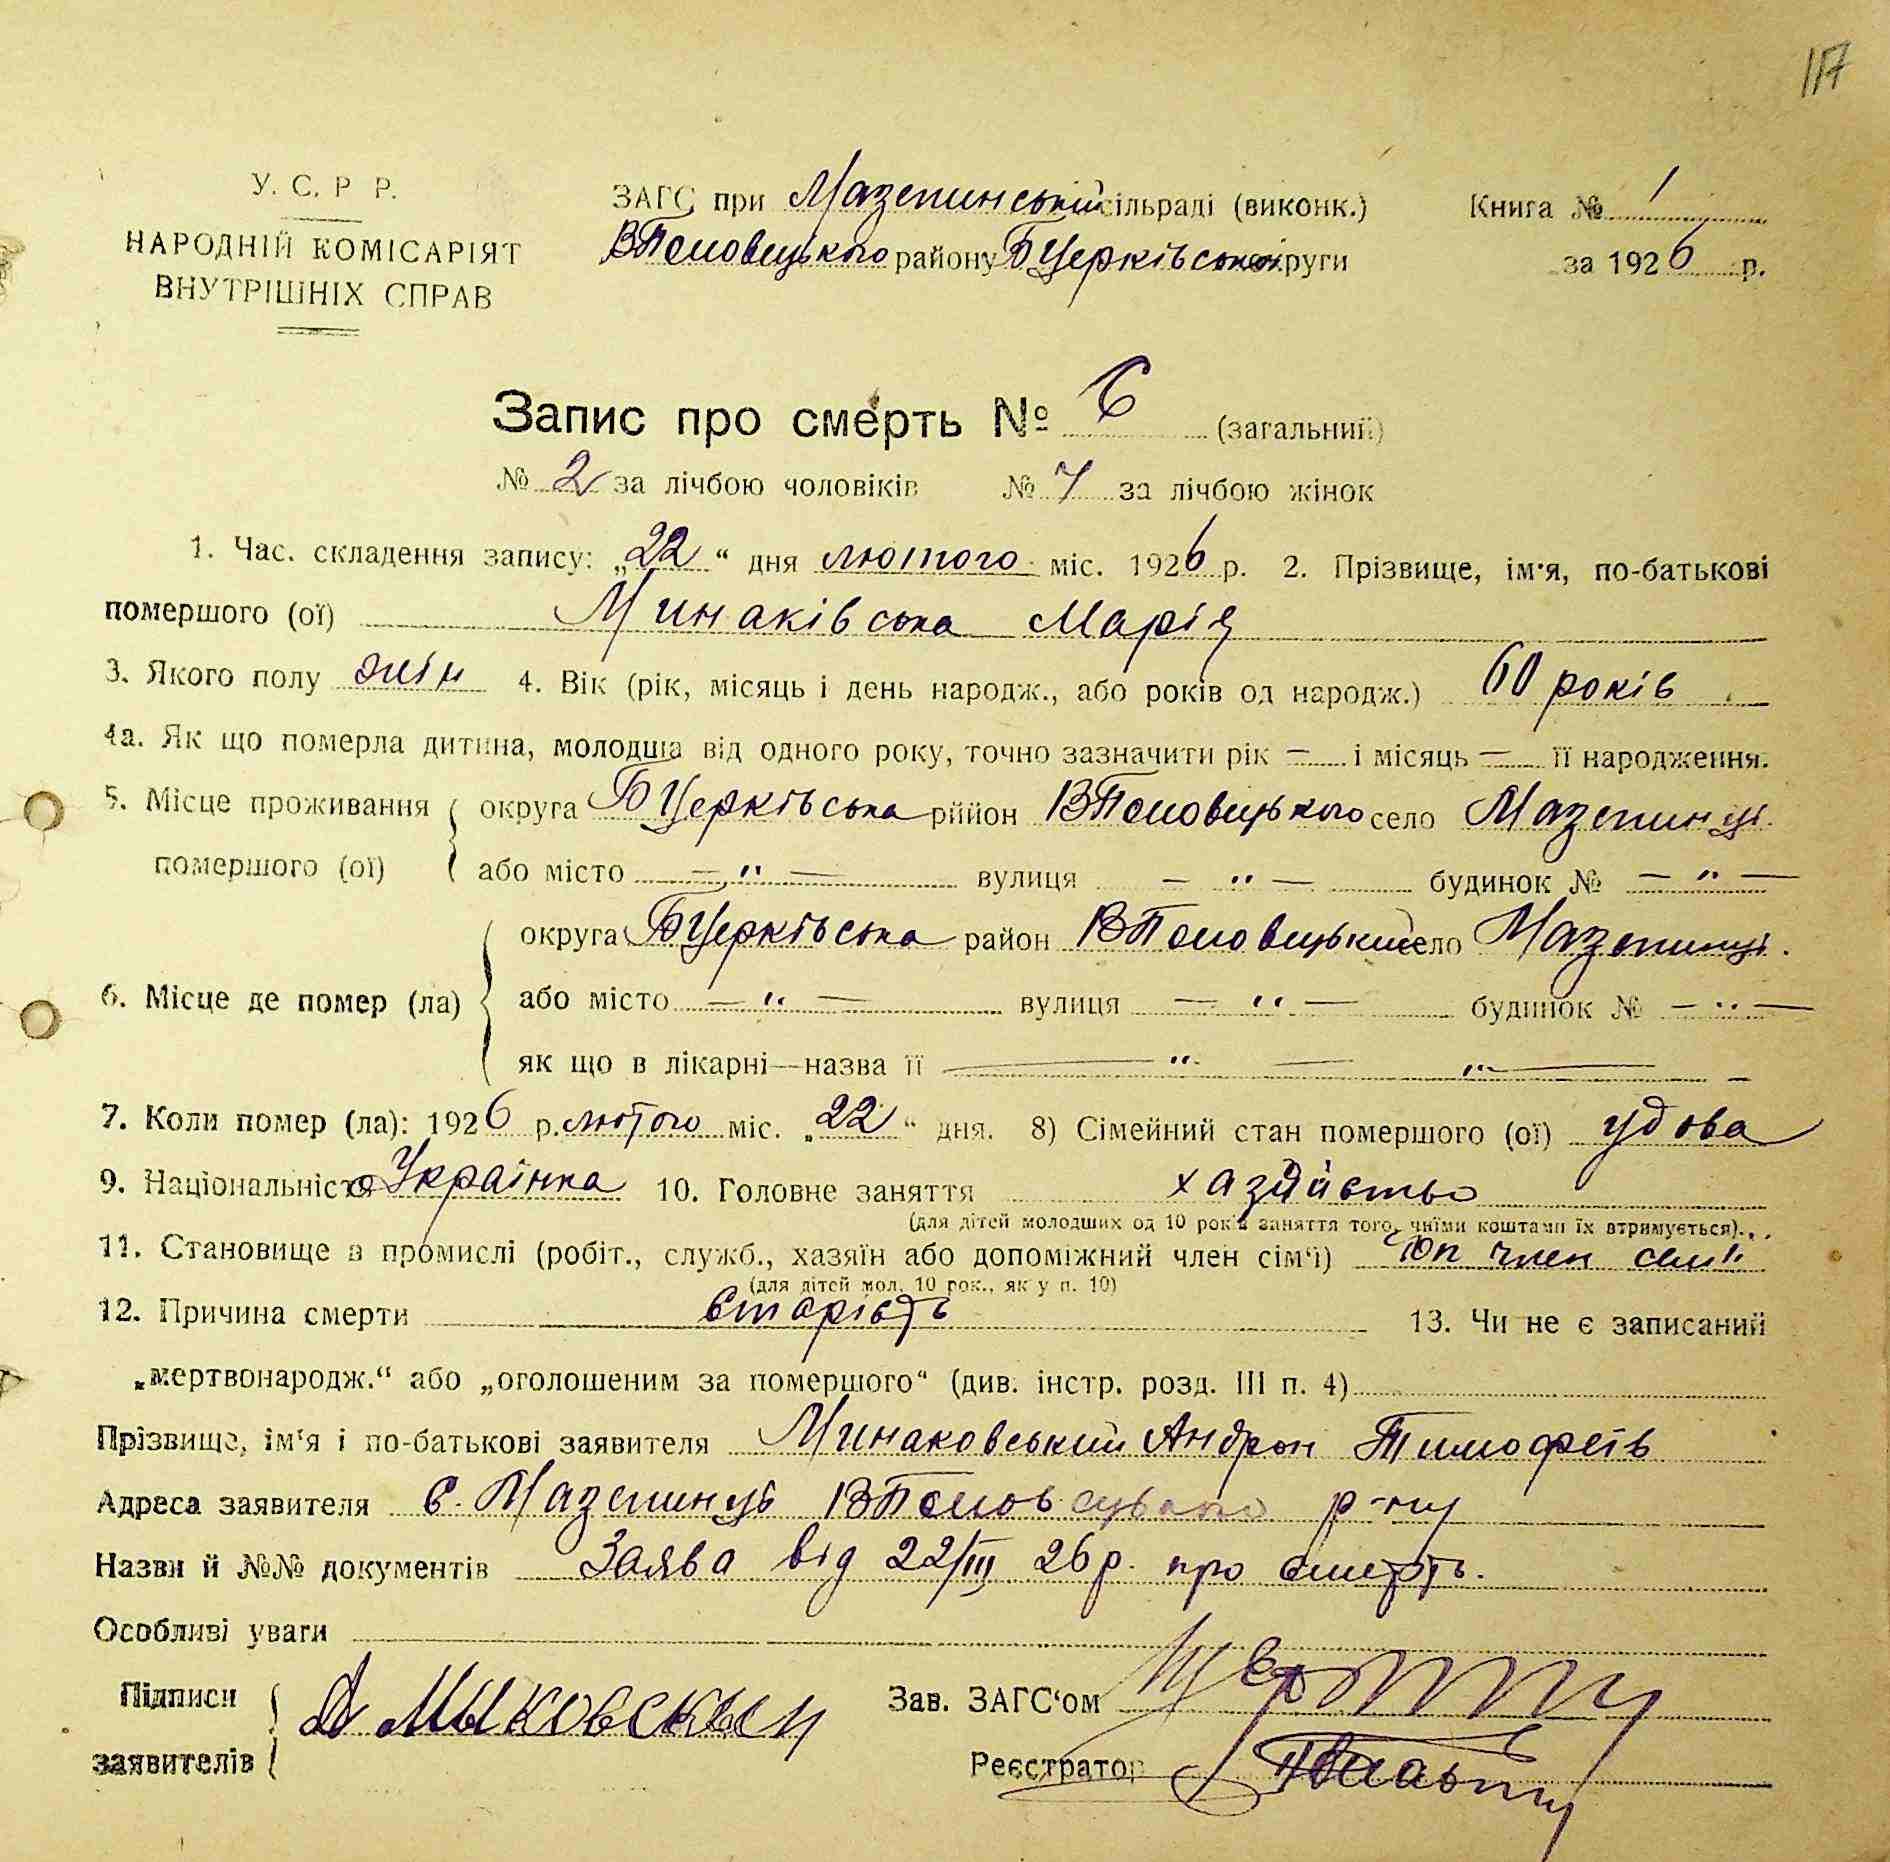 117
У. С. Р Р.
НАРОДНІЙ КОМІСАРІЯТ
ВНУТРІШНІХ СПРАВ
ЗАГС при Мазепинській сільраді (виконк.)
ВПоловецького району БЦерківської округи
Книга № 1
за 1926 р.
Запис про смерть № 6 (загальний)
№ 2 за лічбою чоловіків № 4 за лічбою жінок
1. Час. складення запису: „22“ дня лютого міс. 1926 р. 2. Прізвище, ім'я, по-батькові
помершого (ої) Минаківська Марія
3. Якого полу жін 4. Вік (рік, місяць і день народж., або років од народж.) 60 років
4а. Як що померла дитина, молодша від одного року, точно зазначити рік — і місяць — її народження.
5. Місце проживання помершого (ої) округа БЦерківська рййон ВПоловецького село Мазепинці
або місто — „ — вулиця — „ — будинок № — „ —
6. Місце де помер (ла) округа БЦерківська район ВПоловецький село Мазепинці.
або місто — „ — вулиця — „ — будинок № — „ —
як що в лікарні—назва її — „ — „ —
7. Коли помер (ла): 1926 р. лютого міс. „22“ дня. 8) Сімейний стан помершого (ої) удова
9. Національність Українка 10. Головне заняття хазяйство
(для дітей молодших од 10 років заняття того, чиїми коштами їх втримується).
11. Становище в промислі (робіт., служб., хазяїн або допоміжний член сім'ї) доп член сем'ї
(для дітей мол. 10 рок., як у п. 10)
12. Причина смерти старість 13. Чи не є записаний
„мертвонародж.“ або „оголошеним за помершого“ (див. інстр. розд. III п. 4)
Прізвище, ім'я і по-батькові заявителя Минаковський Андрон Тимофеїв
Адреса заявителя с. Мазепинці ВПоловецького р-ну
Назви й №№ документів Заява від 22/III 26 р. про смерть.
Особливі уваги
Підписи заявителів
Зав. ЗАГС‘ом
Реєстратор